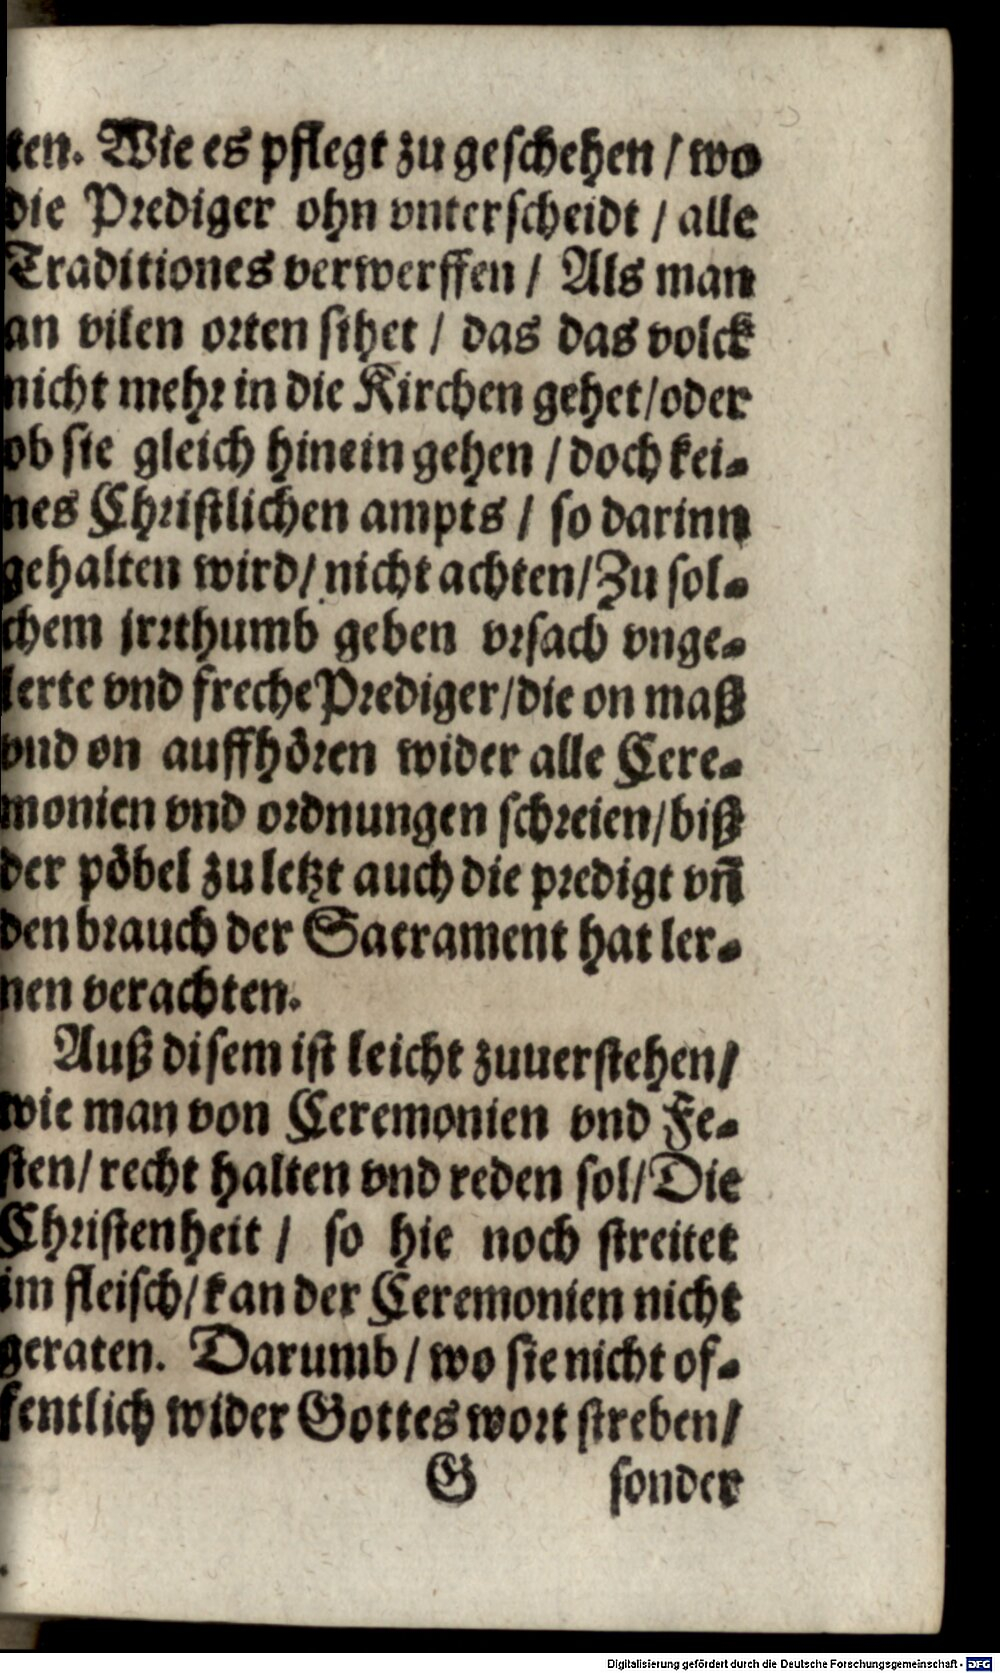 ten. Wie es pflegt zu geschehen / wo
die Prediger ohn vnterscheidt / alle
Traditiones verwerffen / Als man
an vilen orten sihet / das das volck
nicht mehr in die Kirchen gehet / oder
ob sie gleich hinein gehen / doch kei⸗
nes Christlichen ampts / so darinn
gehalten wird / nicht achten / Zu sol⸗
chem jrrthumb geben vrsach vnge⸗
lerte vnd freche Prediger / die on maß
vnd on auffhören wider alle Cere⸗
monien vnd ordnungen schreien / biß
der pöbel zu letzt auch die predigt vñ
den brauch der Sacrament hat ler⸗
nen verachten.
Auß disem ist leicht zuuerstehen /
wie man von Ceremonien vnd Fe⸗
sten / recht halten vnd reden sol / Die
Christenheit / so hie noch streitet
im fleisch / kan der Ceremonien nicht
geraten. Darumb / wo sie nicht of⸗
fentlich wider Gottes wort streben /
G sonder
Digitalisierung gefördert durch die Deutsche Forschungsgemeinschaft - DFG